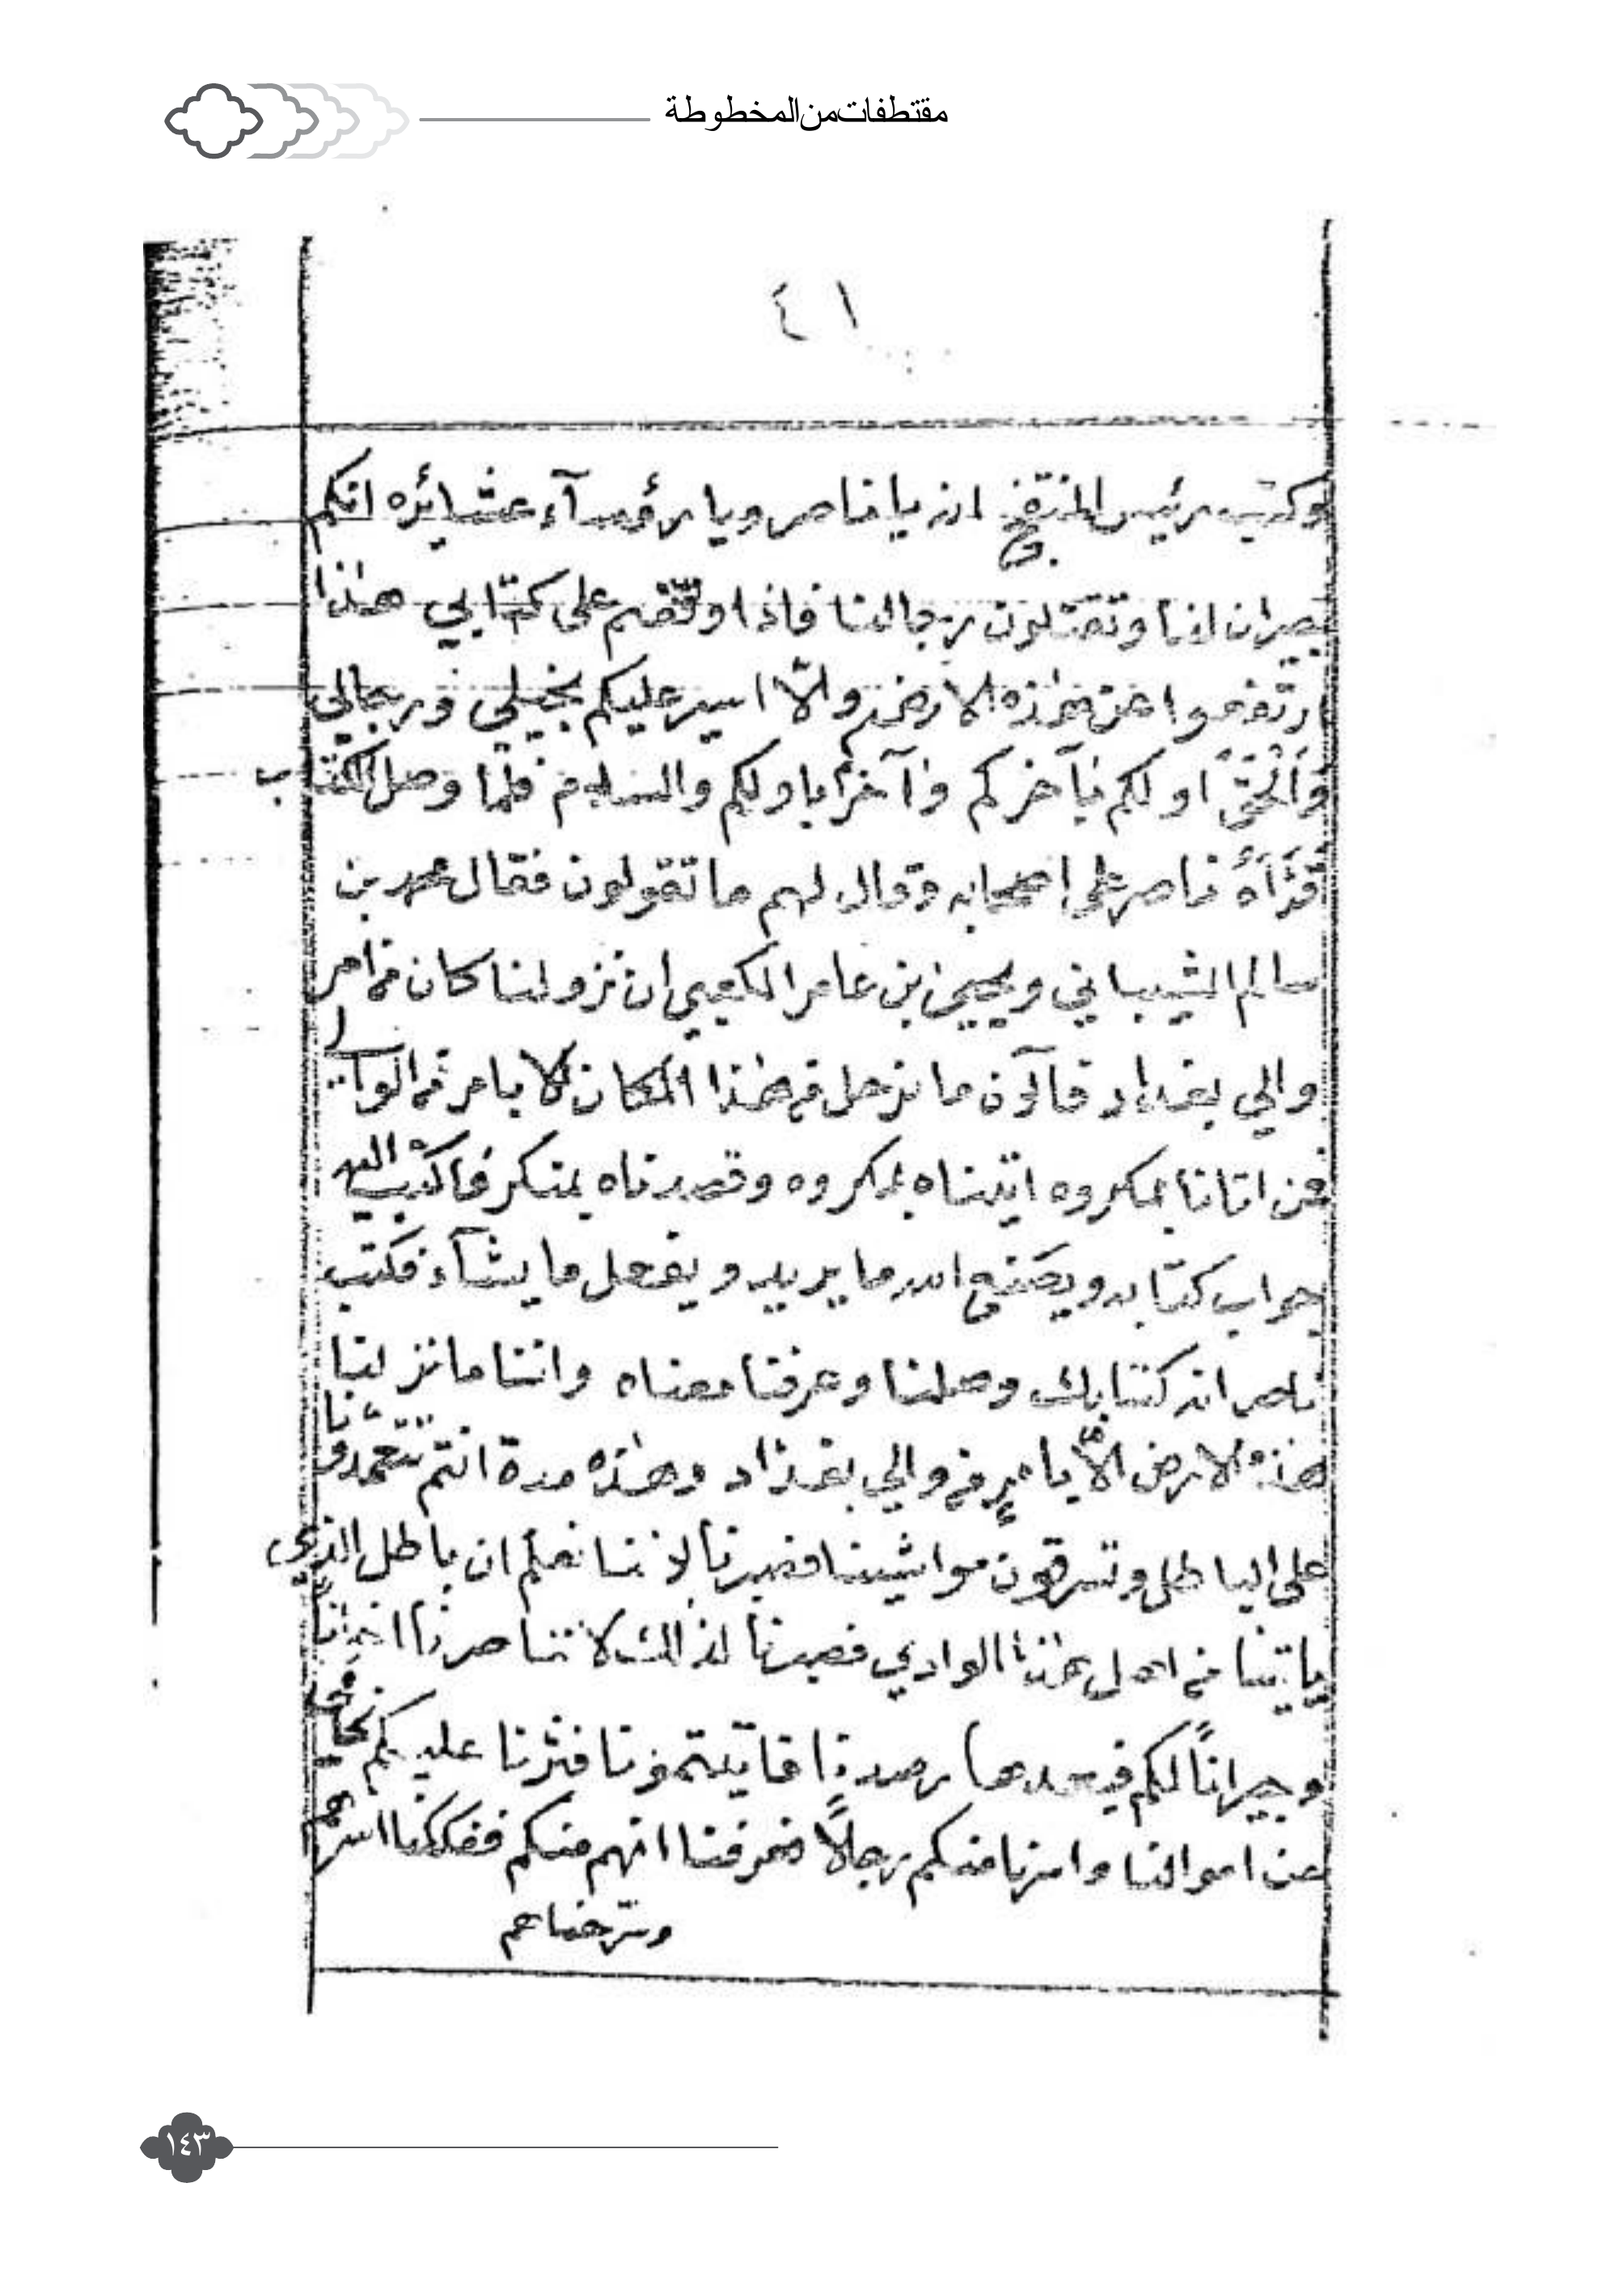 مقتطفات من المخطوطة
٤١
وكتب رئيس المنتفج انه يا ناصر ويا رؤسآء عشائره انكم
وتقتلون رجالنا فاذا وقفتم على كتابي هذا
ارتفعوا عن هذه الارض والّا اسير عليكم بخيلي ورجالي
وَاَلْحَقُ اولكم بآخركم وآخركم باولكم والسلام فلما وصل الكتاب
قَرَأهُ ناصر على اصحابه وقال لهم ما تقولون فقال محمد بن
سالم الشيباني ويحيى بن عامر الكعبي ان نزولنا كان من امر
والي بغداد فآلآن ما نرحل من هذا المكان الا بامر من الوالي
فمن اتانا بمكروه اتيناه بمكروه وقصدناه بمنكر فاكتب اليه
جواب كتابه ويصنع الله ما يريد ويفعل ما يشآء فكتب
ناصر انه كتابك وصلنا وعرفنا معناه واننا ما نزلنا
هذه الارض الّا بامرٍ من والي بغداد وهذه مدة انتم تتعمدونا
على الباطل وتسرقون مواشينا فصبرنا لاننا نعلم ان باطل الذي
ياتينا من اهل هذا الوادي فصبرنا لذالك لا تنا صرنا اخوانًا
وجيرانًا لكم فبعدها رصدنا فاتيتمونا فثرنا عليكم نحامي
عن اموالنا واسرنا منكم رجالًا فعرفنا انهم منكم ففككنا اسرهم
وسرحناهم
١٤٣